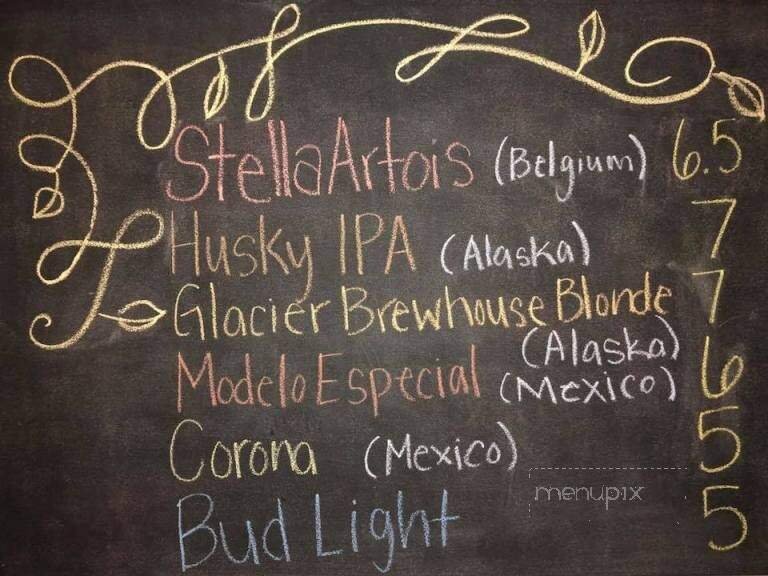 Stella Artois (Belgium) 6.5
Husky IPA (Alaska) 7
Glacier Brewhouse Blonde 7
(Alaska)
Modelo Especial (Mexico) 6
Corona (Mexico) 5
menupix
Bud Light 5